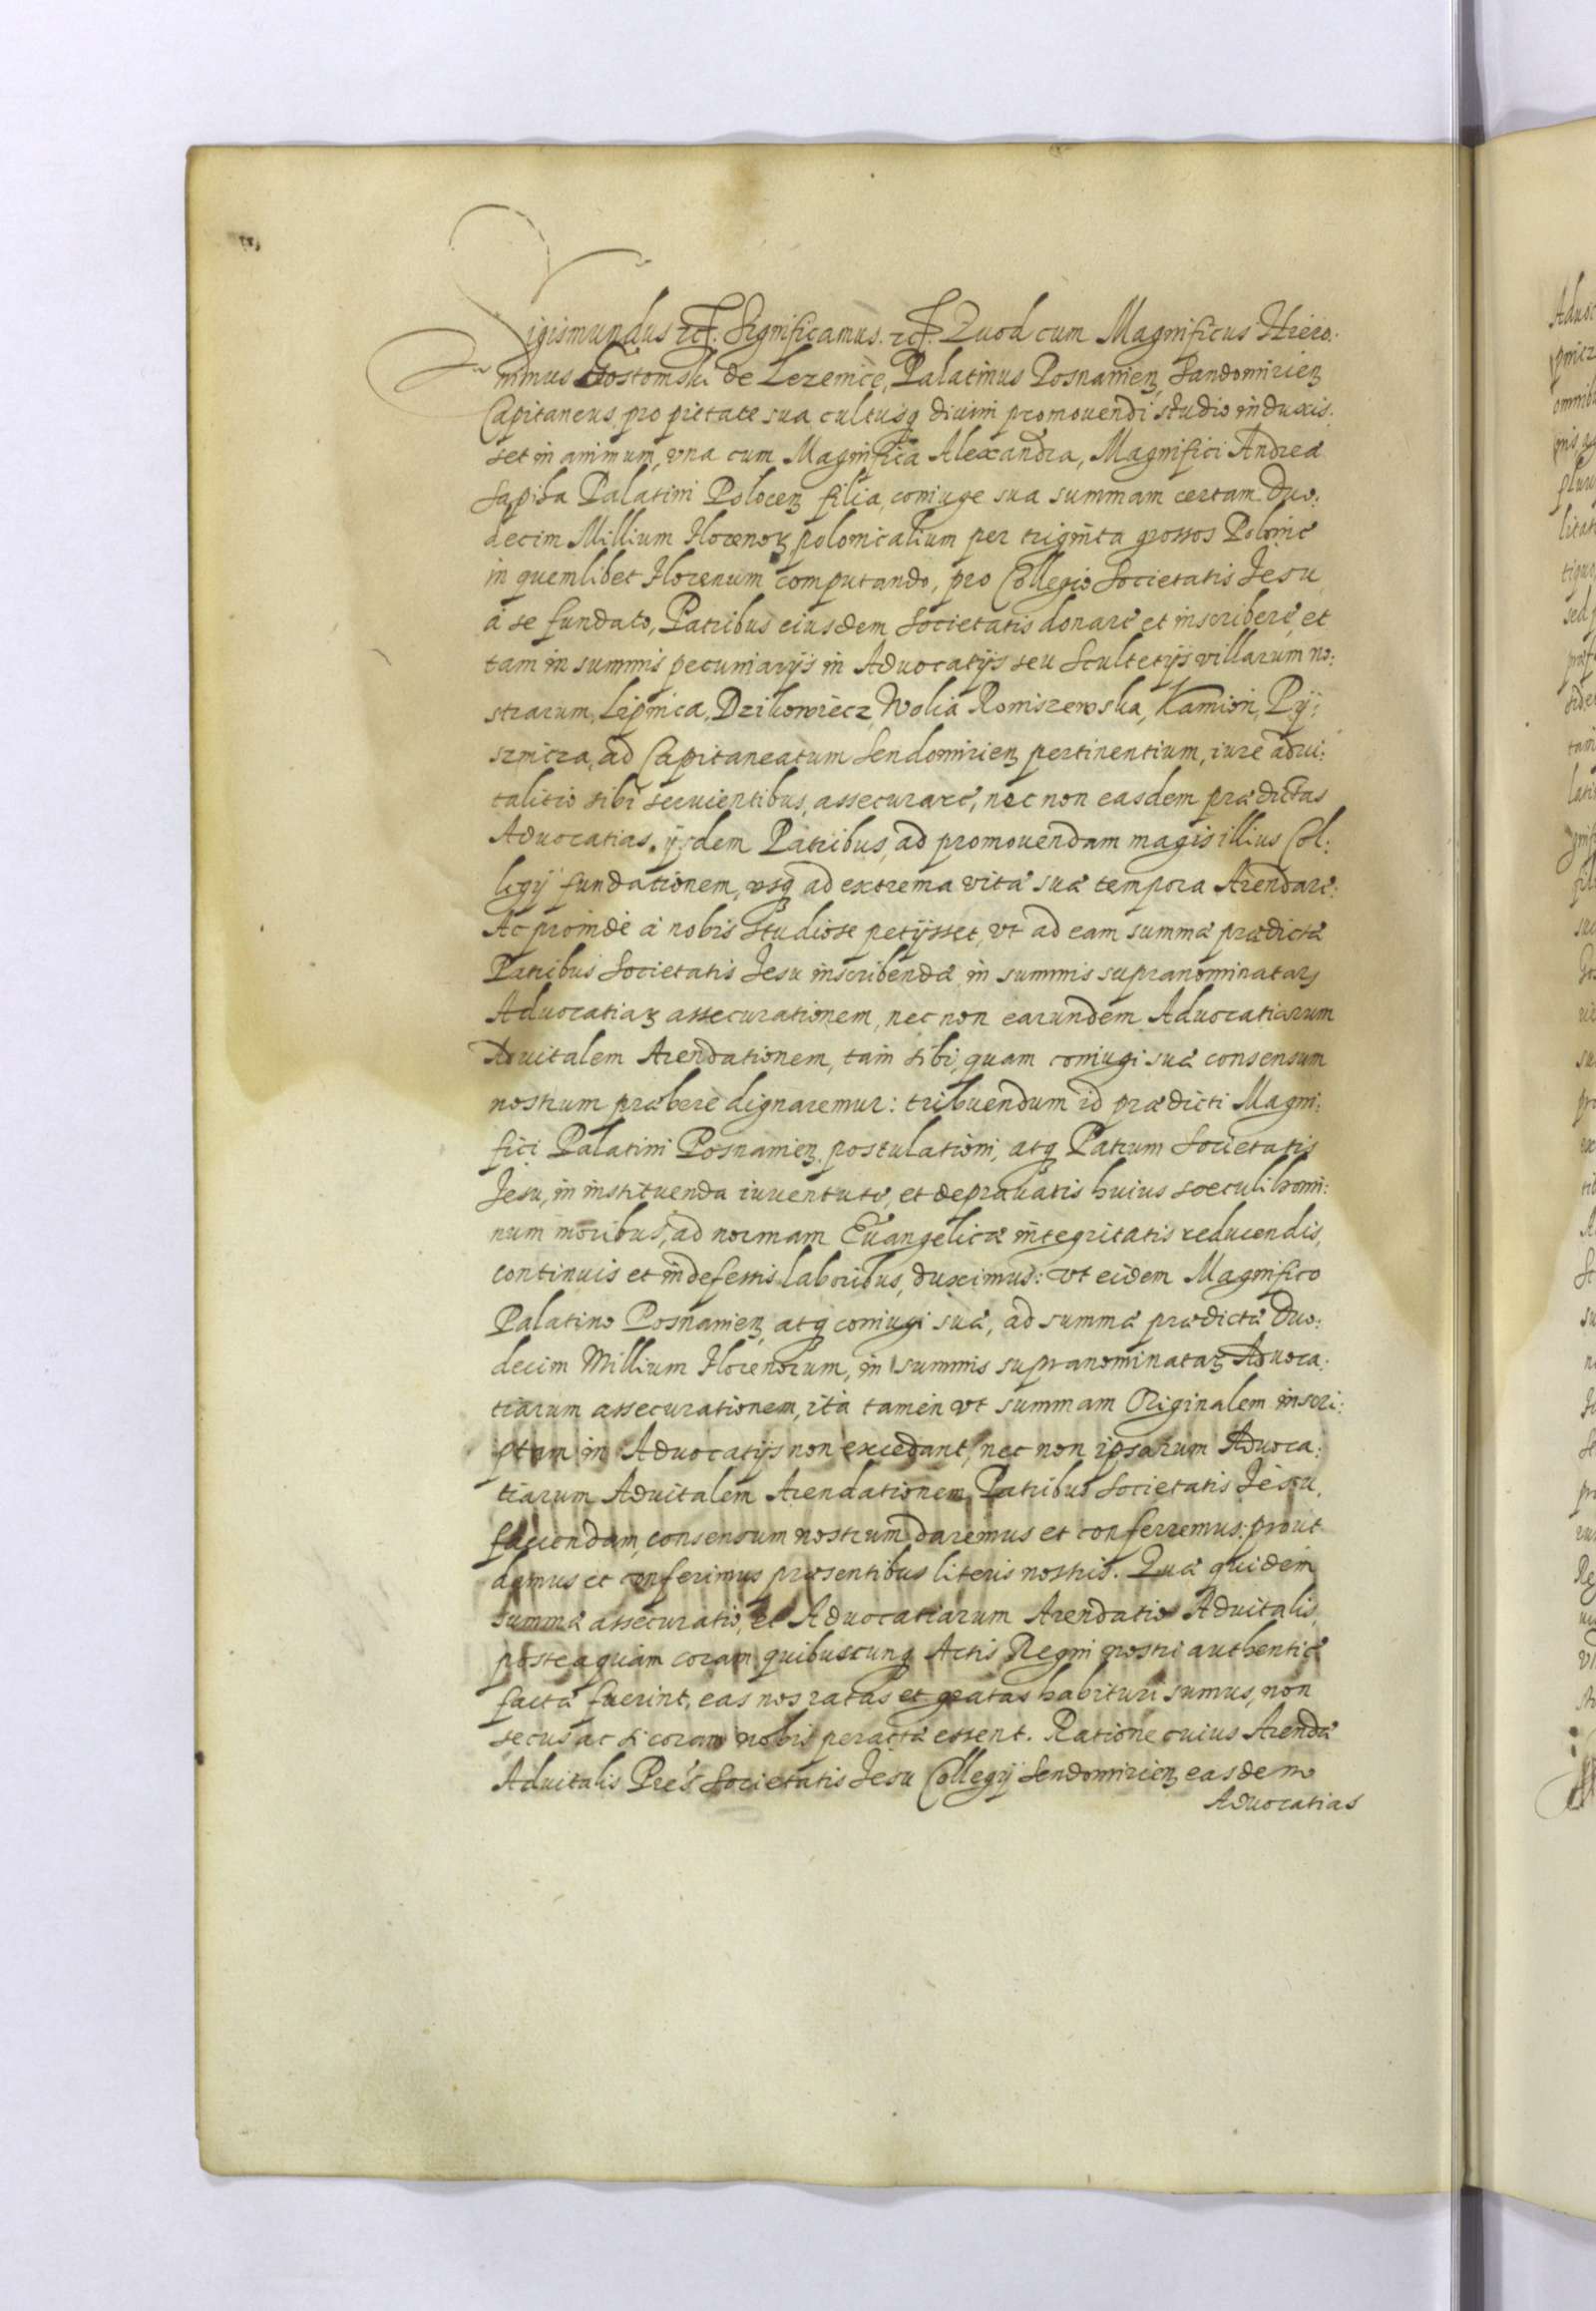 Sigismundus etc. Significamus. etc. Quod cum Magnificus Hiero:
nimus Gostomski de Lezenice, Palatinus Posnanien Sandomirien
Capitaneus, pro pietate sua, cultusq diuini promouendi studio induxis:
set in animum, vna cum Magnifica Alexandra, Magnifici Andreæ
Sapiha Palatini Polocen filia, coniuge sua summam certam Duo:
decim Millium Florenoꝝ polonicalium per triginta grossos Polonicė
in quemlibet Florenum computando, pro Collegio Societatis Jesu,
à se fundato, Patribus eiusdem Societatis donare et inscribere, et
tam in summis pecuniarijs in Aduocatijs seu Scultetijs villarum no:
strarum, Lipnica, Dzikowiecz, Wolia Roniszewska, Kamion, Pÿ:
sznicza, ad Capitaneatum Sendomirien pertinentium, iure adui:
talitio sibi seruientibus, assecurare, nec non easdem prædictas
Aduocatias, ÿsdem Patribus, ad promouendam magis illius Col:
legÿ fundationem, vsq ad extrema vitæ suæ tempora Arendare:
Ac proindè à nobis studiose petÿsset, vt ad eam summæ prædictæ
Patribus Societatis Jesu inscribendæ, in summis supranominataꝝ
Aduocatiaꝝ assecurationem, nec non earundem Aduocatiarum
Aduitalem Arendationem, tam sibi, quam coniugi suæ consensum
nostrum præbere dignaremur: tribuendum id prædicti Magni:
fici Palatini Posnanien postulationi, atq Patrum Societatis
Jesu, in instituenda iuuentute, et deprauatis huius sæculi homi:
num moribus, ad normam Euangelicæ integritatis reducendis,
continuis et indefessis laboribus, duximus: vt eidem Magnifico
Palatino Posnanien, atq coniugi suæ, ad summæ prædictæ Duo:
decim Millium Florenorum, in summis supranominataꝝ Aduoca:
tiarum assecurationem, ità tamen vt summam Originalem inscri:
ptam in Aduocatijs non excedant, nec non ipsarum Aduoca:
tiarum Aduitalem Arendationem, Patribus Societatis Jesu,
faciendam, consensum nostrum daremus et conferremus: prout
damus et conferimus præsentibus literis nostris. Quæ quidem
summæ assecuratio, et Aduocatiarum Arendatio Aduitalis,
posteaquàm coram quibuscunq Actis Regni nostri authenticè
facta fuerint, eas nos ratas et gratas habituri sumus, non
secus ac si coram nobis peracta essent. Ratione cuius Arendæ
Aduitalis Pres Societatis Jesu Collegÿ Sendomirien easdem
Aduocatias